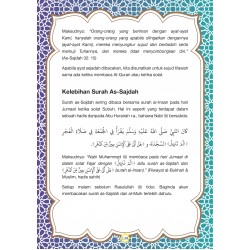 Maksudnya: "Orang-orang yang beriman dengan ayat-ayat
Kami, hanyalah orang-orang apabila diingatkan dengannya
(ayat-ayat Kami), mereka menyungkur sujud dan bertasbih serta
memuji Tuhannya, dan mereka tidak menyombongkan diri."
(As-Sajdah 32: 15)
Apabila ayat sajadah dibacakan, kita disunatkan untuk sujud tilawah
sama ada ketika membaca Al-Quran atau ketika solat.
Kelebihan Surah As-Sajdah
Surah as-Sajdah sering dibaca bersama surah al-Insan pada hari
Jumaat ketika solat Subuh. Hal ini seperti yang terdapat dalam
sebuah hadis daripada Abu Hurairah r.a., bahawa beliau berkata:
كَانَ النَّبِيُّ صَلَّى اللهُ عَلَيْهِ وَسَلَّمَ يَقْرَأُ فِي الْجُمُعَةِ فِي صَلَاةِ الْفَجْرِ
Maksudnya: "Nabi Muhammad membaca pada hari Jumaat di dalam
(Riwayat al-Bukhari &
Muslim, hadis sahih)
Setiap malam sebelum Rasulullah tidur, Baginda akan
membacakan surah as-Sajdah dan al-Mulk terlebih dahulu.